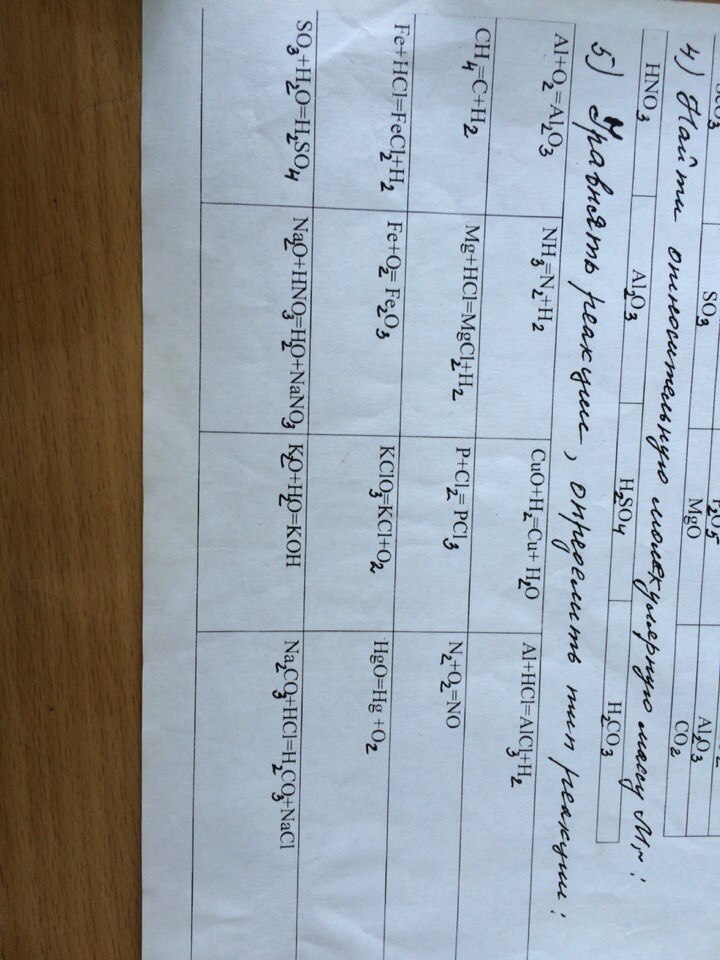 SO₃ P₂O₅
SO₃ MgO Al₂O₃
CO₂
4) Найти относительную молекулярную массу Mr:
HNO₃ Al₂O₃ H₂SO₄ H₂CO₃
5) Уравнять реакции, определить тип реакции:
Al+O₂=Al₂O₃ NH₃=N₂+H₂ CuO+H₂=Cu+H₂O Al+HCl=AlCl₃+H₂
CH₄=C+H₂ Mg+HCl=MgCl₂+H₂ P+Cl₂=PCl₃ N₂+O₂=NO
Fe+HCl=FeCl₂+H₂ Fe+O₂=Fe₂O₃ KClO₃=KCl+O₂ HgO=Hg+O₂
SO₃+H₂O=H₂SO₄ Na₂O+HNO₃=H₂O+NaNO₃ K₂O+H₂O=KOH Na₂CO₃+HCl=H₂CO₃+NaCl